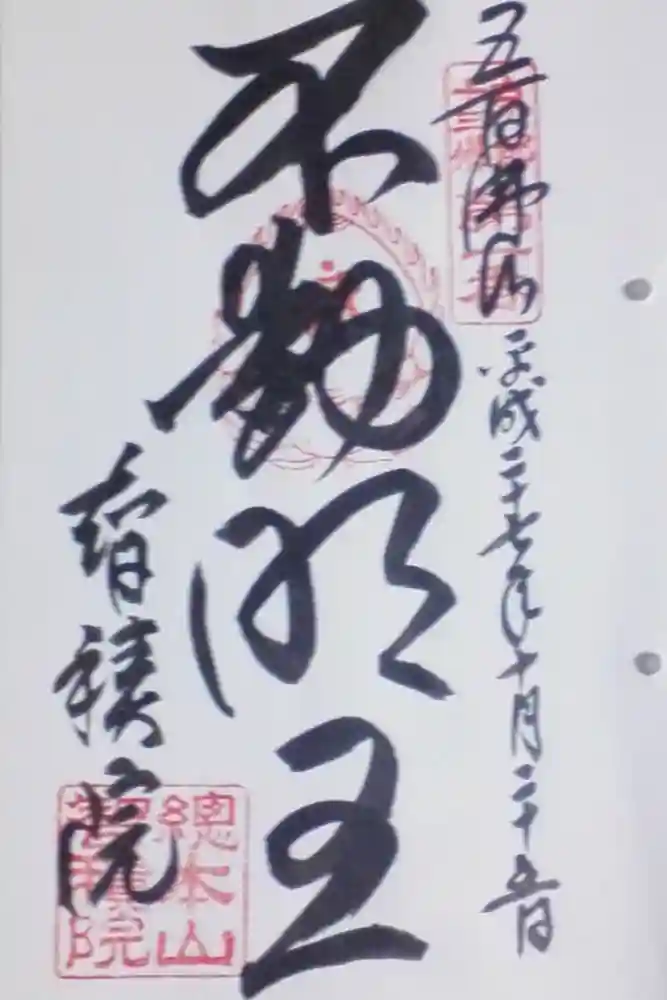 五百佛山
平成二十七年十月二十五日
不動明王
智積院
總本山
智積院